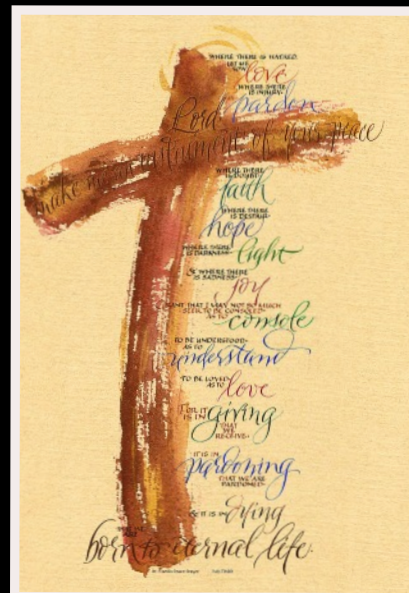 WHERE THERE IS HATRED
LET ME
SOW
love
WHERE THERE
IS INJURY
pardon
Lord
make me an instrument of your peace
WHERE THERE
IS DOUBT
faith
WHERE THERE
IS DESPAIR
hope
WHERE THERE
IS DARKNESS
light
& WHERE THERE
IS SADNESS
joy
GRANT THAT I MAY NOT SO MUCH
SEEK TO BE CONSOLED
AS TO
console
TO BE UNDERSTOOD
AS TO
understand
TO BE LOVED
AS TO
love
FOR IT
IS IN
giving
THAT
WE
RECEIVE
IT IS IN
pardoning
THAT WE ARE
PARDONED
& IT IS IN
dying
born to eternal life